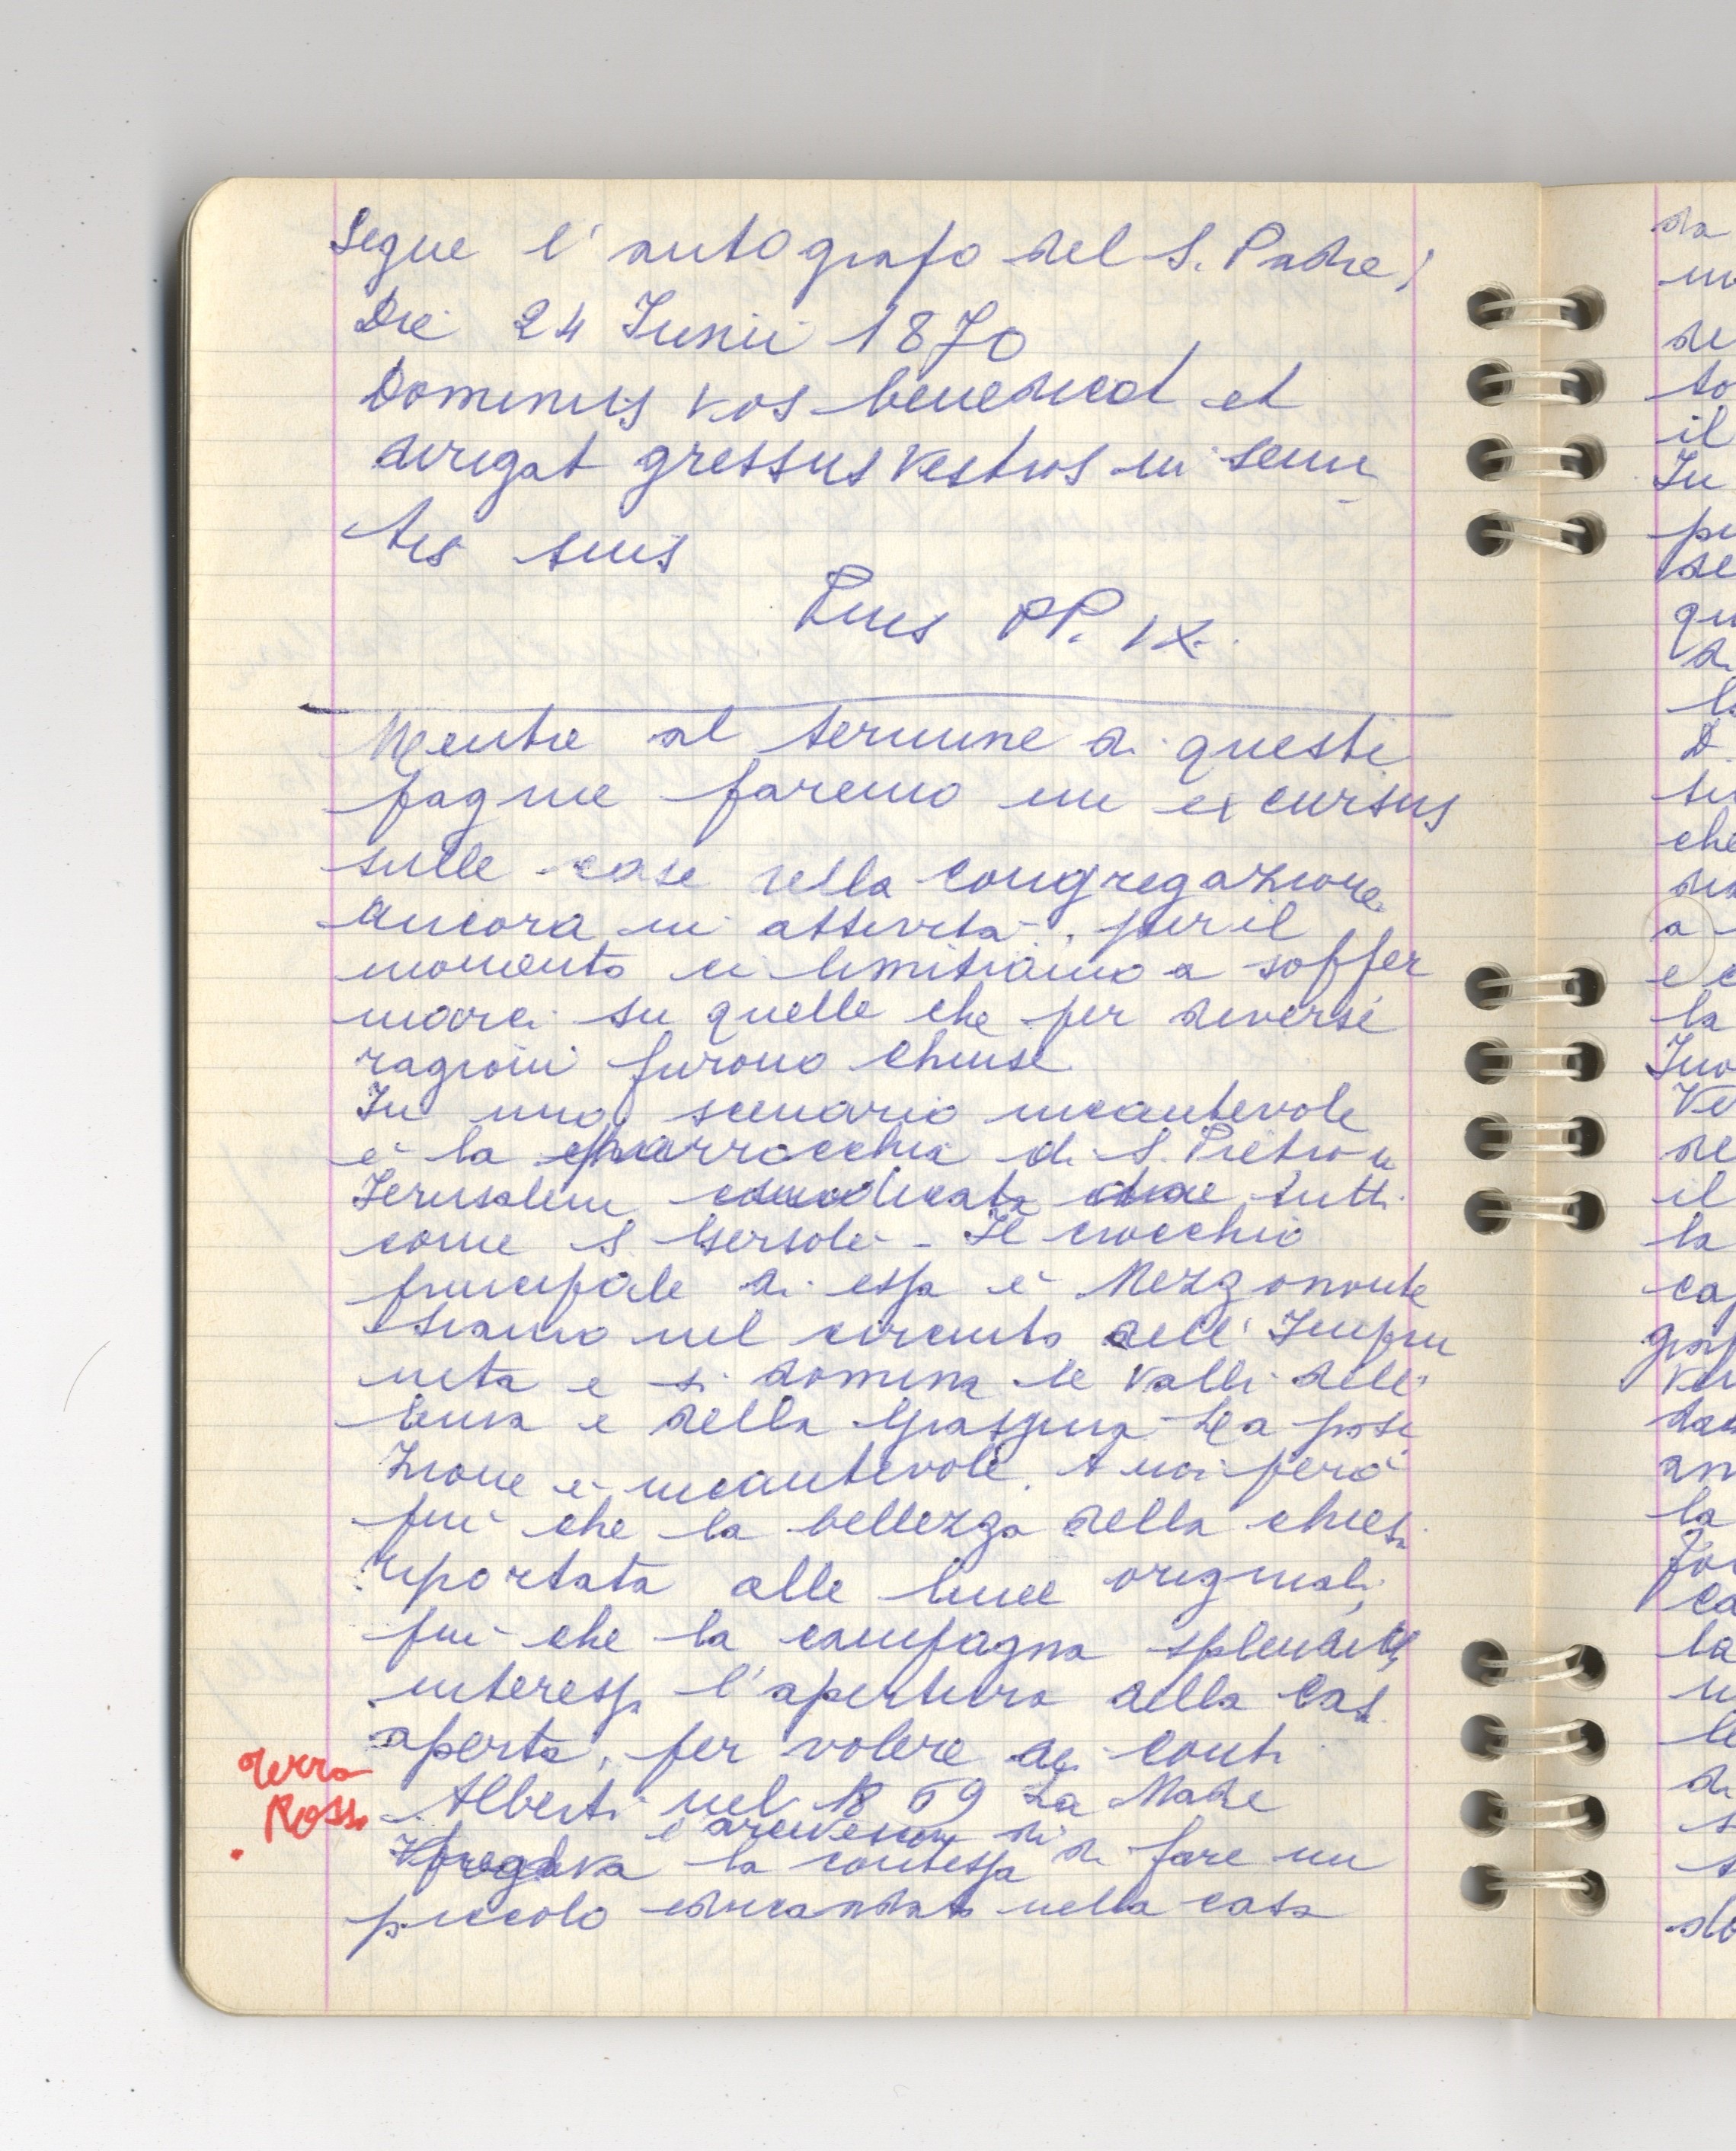 Segue l'autografo del S. Padre;
Die 24 Junii 1870
Dominus vos benedicat et
dirigat gressus vestros in semi
tis suis
Pius PP. IX.
Mentre al termine di queste
pagine faremo un excursus
sulle case della Congregazione
ancora in attività, per il
momento ci limitiamo a soffer
marci su quelle che per diverse
ragioni furono chiuse
In uno scenario incantevole
è la parrocchia di S. Pietro in
Jerusalem tutti
come S. Gersolè - Il crocchio
principale di essa è Mezzomonte
Siamo nel circuito dell'Impru
neta e si domina le valli dell'
Ema e della Grassina La posi
zione è incantevole. A noi però
più che la bellezza della chiesa
riportata alle linee originali,
più che la campagna splendida
interessa l'apertura della casa
aperta, per volere dei Conti
Alberti nel 1869 La Madre
e arcivescov di
pregava la contessa di fare un
piccolo educandato nella casa
terra
Rossa
da
de
to
il
In
qu
che
a
e
la
Ve
de
il
la
an
la
la